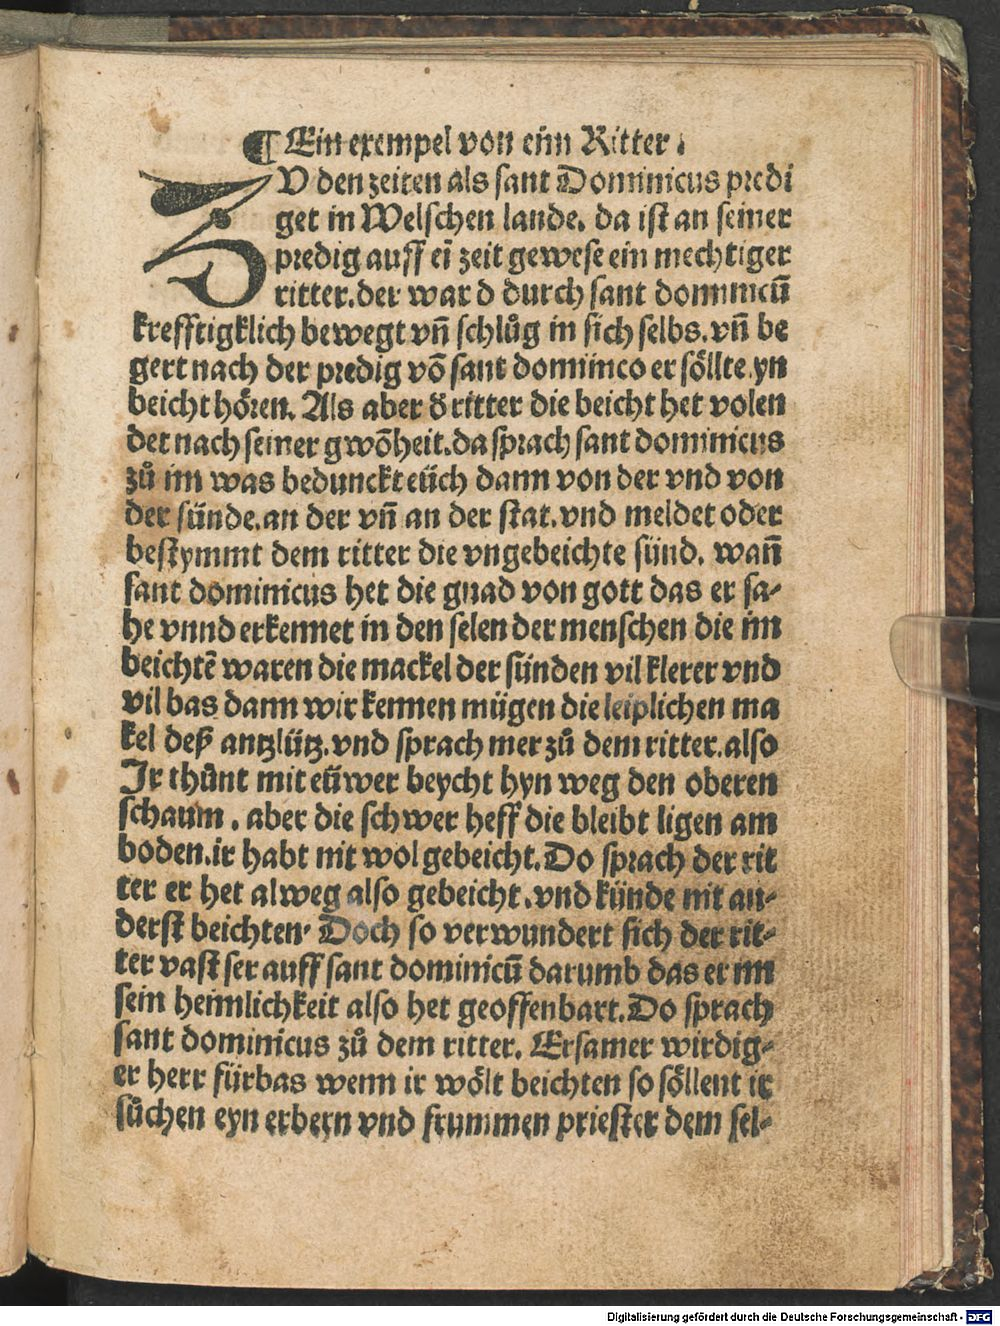 ¶ Ein exempel von eim Ritter.
ZV den zeiten als sant Dominicus predi
get in Welschen lande. da ist an seiner
predig auff eī zeit gewese ein mechtiger
ritter.der war d durch sant dominicū
krefftigklich bewegt vñ schlůg in sich selbs.vñ be
gert nach der predig võ sant dominico er söllte.yn
beicht hören. Als aber d̕ ritter die beicht het volen
det nach seiner gwõheit.da sprach sant dominicus
zů im was bedunckt eüch dann von der vnd von
der sünde.an der vñ an der stat.vnd meldet oder
bestymmt dem ritter die vngebeichte sünd. wañ
sant dominicus het die gnad von gott das er sa-
he vnnd erkennet in den selen der menschen die im
beichtē waren die mackel der sünden vil klerer vnd
vil bas dann wir kennen mügen die leiplichen ma
kel deß antzlütz.vnd sprach mer zů dem ritter.also
Jr thůnt mit eüwer beycht hyn weg den oberen
schaum . aber die schwer heff die bleibt ligen am
boden.ir habt nit wol gebeicht.Do sprach der rit
ter er het alweg also gebeicht.vnd künde nit an-
derst beichten. Doch so verwundert sich der rit-
ter vast ser auff sant dominicū darumb das er im
sein heimlichkeit also het geoffenbart.Do sprach
sant dominicus zů dem ritter. Ersamer wirdig-
er herr fürbas wenn ir wölt beichten so söllent ir
sůchen eyn erbern vnd frummen priester dem sel-
Digitalisierung gefördert durch die Deutsche Forschungsgemeinschaft - DFG